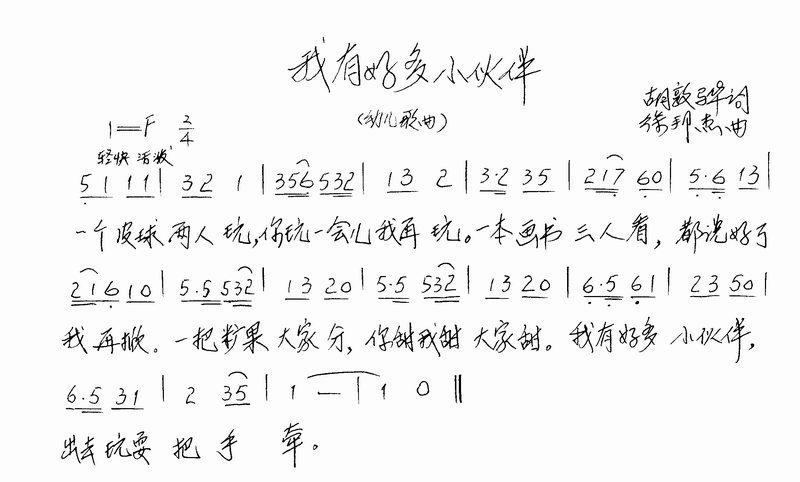 我有好多小伙伴
(幼儿歌曲)
胡敦骅词
徐邦杰曲
1=F 2/4
轻快 活泼
5 1 1 1 | 3 2 1 | 3 5 6 5 3 2 | 1 3 2 | 3·2 3 5 | 2 1 7 6 0 | 5·6 1 3 |
一个皮球两人玩,你玩一会儿我再玩。一本画书三人看,都说好了
2 1 6 1 0 | 5·5 5 3 2 | 1 3 2 0 | 5·5 5 3 2 | 1 3 2 0 | 6·5 6 1 | 2 3 5 0 |
我再掀。一把糖果大家分,你甜我甜大家甜。我有好多小伙伴,
6·5 3 1 | 2 3 5 | 1 — | 1 0 ‖
出去玩耍把手牵。